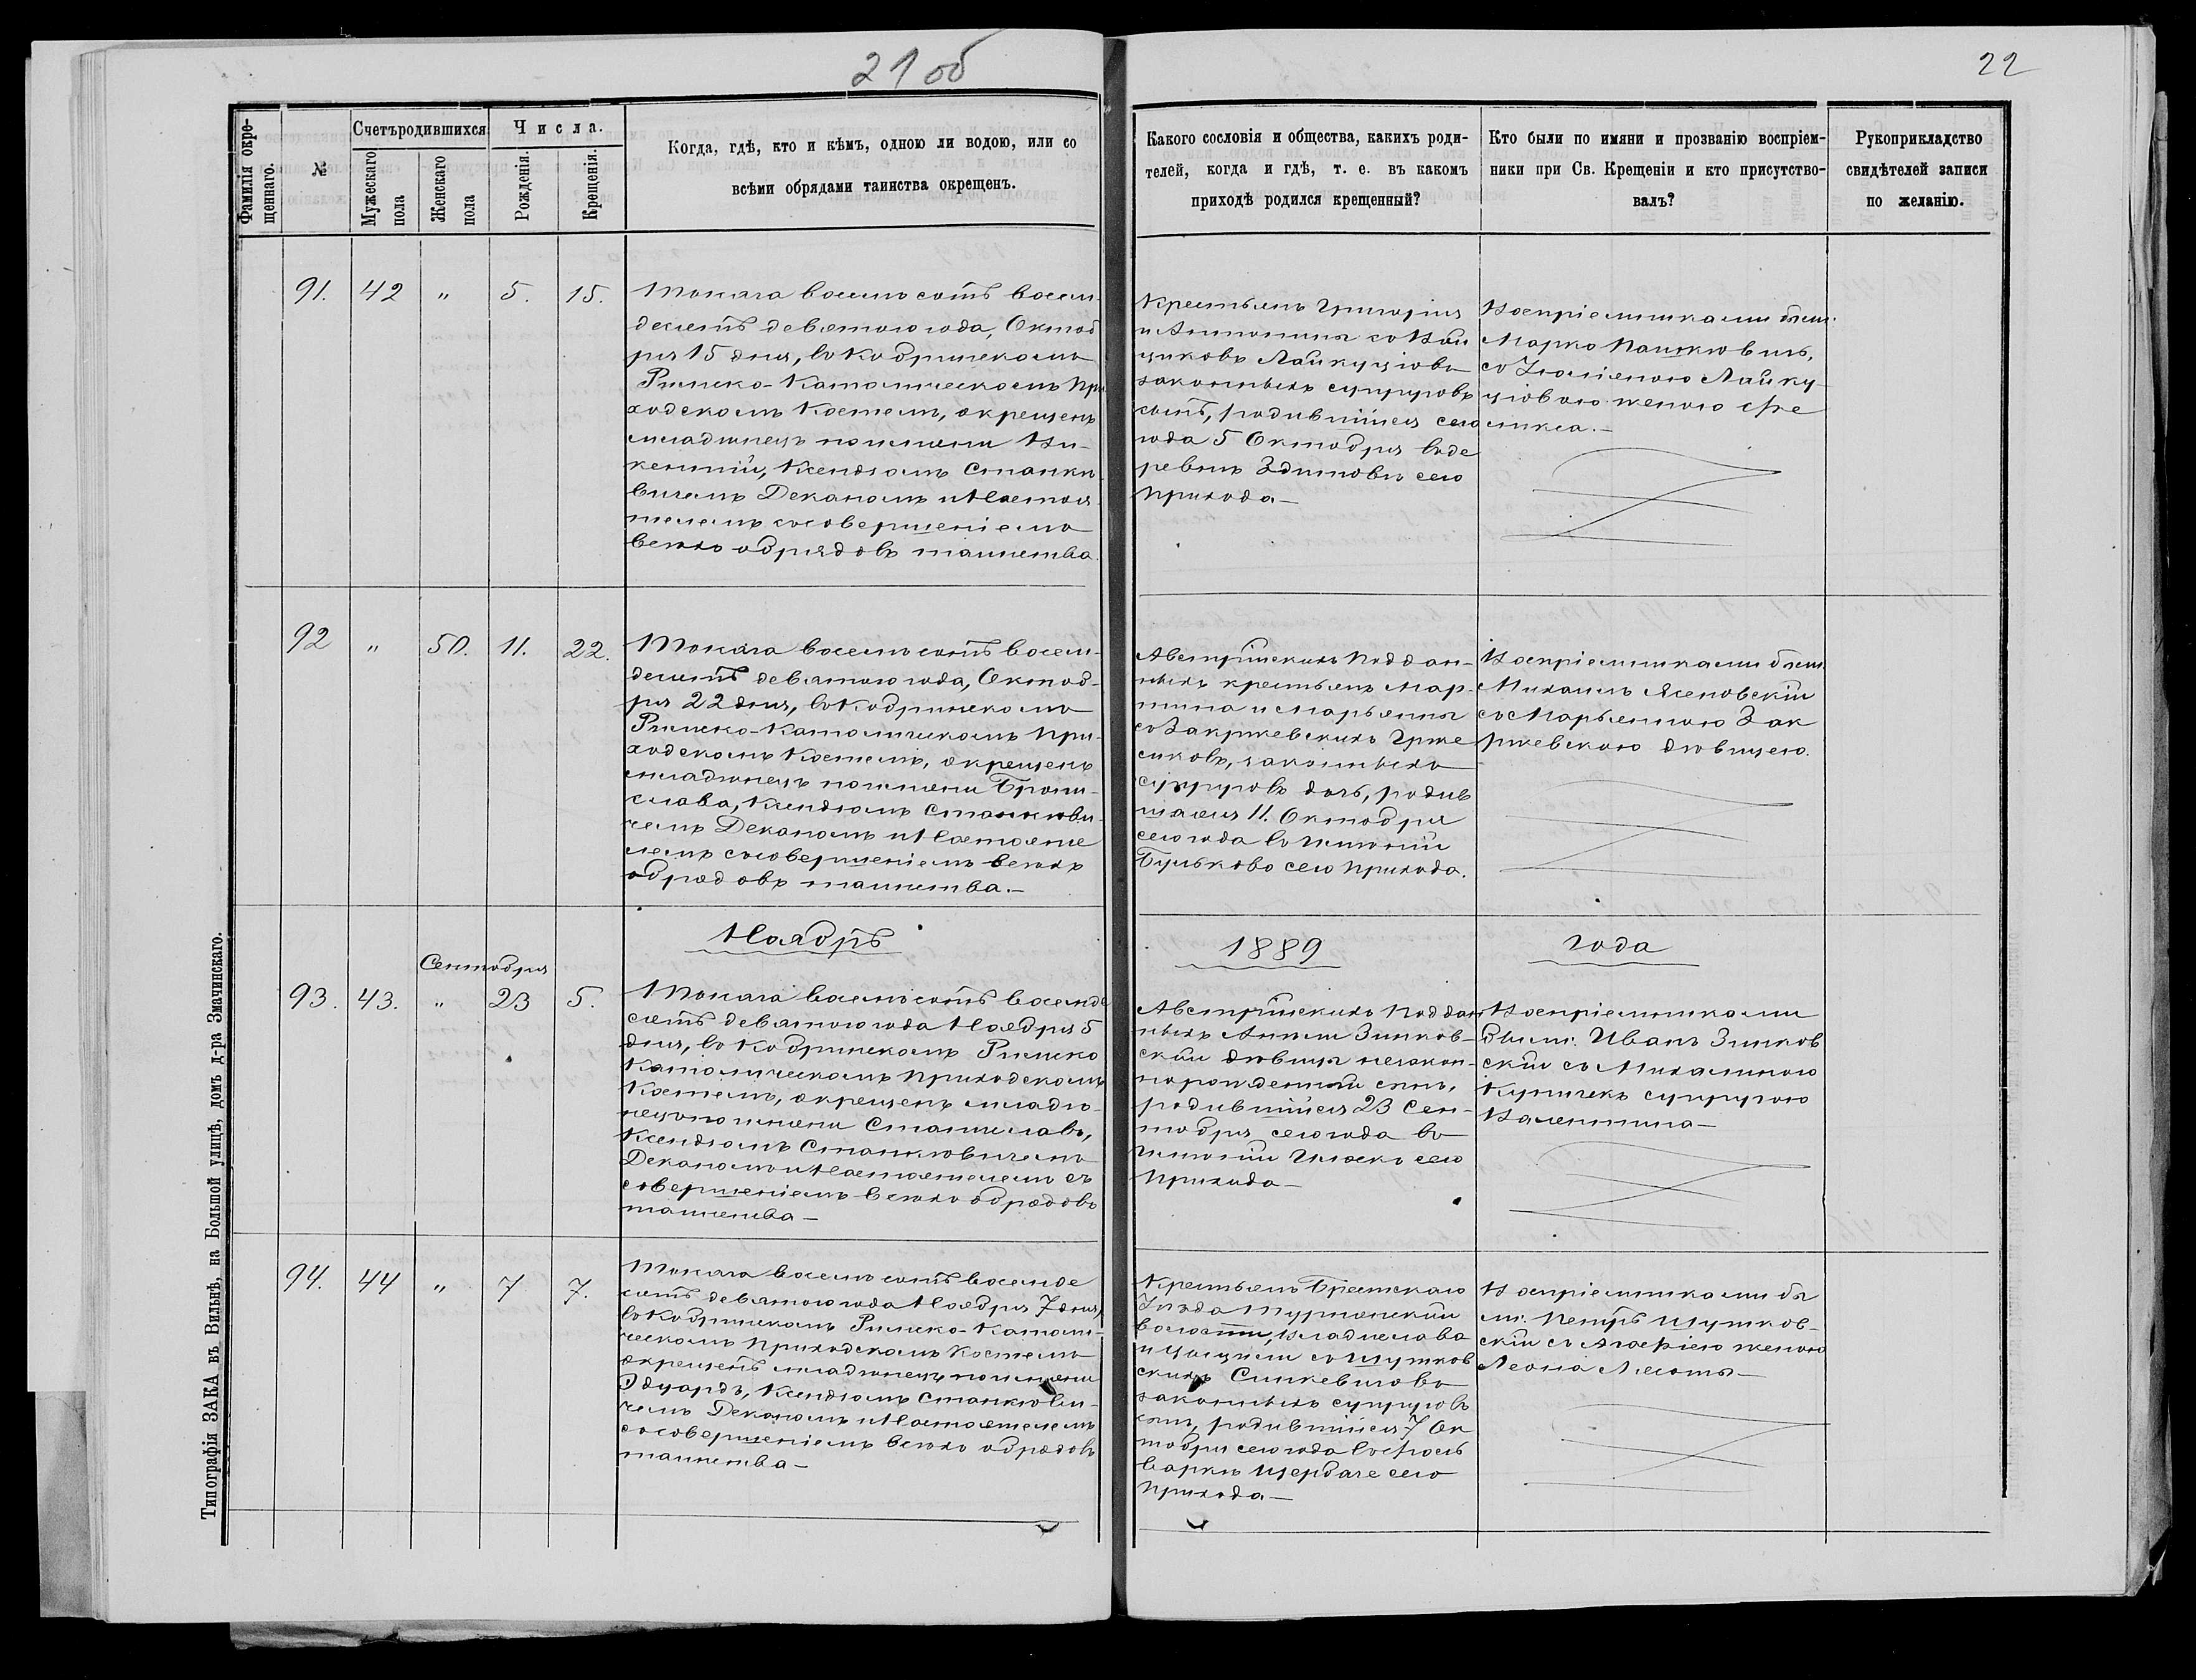 21 об
22
Фамилія окрещеннаго.
№
Счетъ родившихся
Мужескаго пола
Женскаго пола
Числа.
Рожденія.
Крещенія.
Когда, гдѣ, кто и кѣмъ, одною ли водою, или со
всѣми обрядами таинства окрещенъ.
Какого сословія и общества, какихъ роди-
телей, когда и гдѣ, т. е. въ какомъ
приходѣ родился крещенный?
Кто были по имяни и прозванію воспріем-
ники при Св. Крещеніи и кто присутство-
валъ?
Рукоприкладство
свидѣтелей записи
по желанію.
91. 42 " 5. 15.
Тысяча восемьсотъ восем-
десятъ девятого года, Октяб
ря 15 дня, въ Кобринскомъ
Римско-Католическомъ При
ходскомъ Костелѣ, окрещенъ
младенецъ по имени Ви-
кентій, Ксендзомъ Станкѣ
вичемъ Деканомъ и Настоя
телемъ со совершеніемъ
всѣхъ обрядовъ таинства.
Крестьянъ Григорія
и Антонины съ Вой
циковъ Лайкуцѣвъ
законныхъ супруговъ
сынъ, родившійся сего
года 5 Октября въ де
ревнѣ Здитовѣ сего
прихода —
Воспріемниками были:
Марко Пашкѣвичъ,
съ Юліеною Лайку-
цѣвою женою Фе
ликса. —
92 " 50. 11. 22.
Тысяча восемьсотъ восем-
десятъ девятого года, Октяб-
ря 22 дня, въ Кобринскомъ
Римско-Католическомъ При-
ходскомъ Костелѣ, окрещенъ
младенецъ по имени Брони-
слава, Ксендзомъ Станкѣви-
чемъ Деканомъ и Настояте
лемъ со совершеніемъ всѣхъ
обрядовъ таинства. —
Австрійскихъ поддан-
ныхъ крестьянъ Мар-
тина и Марьянны
съ Закржевскихъ Грже
сиковъ, законныхъ
супруговъ дочь, родив
шаяся 11. Октября
сего года въ имѣніи
Бульково сего прихода.
Воспріемниками были
Михаилъ Ясеновскій
съ Марьянною Зак
ржевскою дѣвицею.
Ноябрь
1889
года
Сентября
93. 43. " 23 5.
Тысяча восемьсотъ восемде
сятъ девятого года Ноября 5
дня, въ Кобринскомъ Римско
Католическомъ Приходскомъ
Костелѣ, окрещенъ младе-
нецъ по имени Станиславъ,
Ксендзомъ Станкѣвичемъ
Деканомъ и Настоятелемъ съ
совершеніемъ всѣхъ обрядовъ
таинства —
Австрійскихъ поддан
ныхъ Анели Зинков-
скій дѣвицы незакон-
норожденный сынъ,
родившійся 23 Сен-
тября сего года въ
имѣніи сего
прихода —
Воспріемниками
были: Иванъ Зинков
скій съ Михалиною
Купчекъ супругою
Валентина —
94. 44 " 7 7.
Тысяча восемьсотъ восемде
сятъ девятого года Ноября 7 дня,
въ Кобринскомъ Римско-Католи-
ческомъ Приходскомъ Костелѣ
окрещенъ младенецъ по имени
Эдуардъ, Ксендзомъ Станкѣви-
чемъ Деканомъ и Настоятелемъ
со совершеніемъ всѣхъ обрядовъ
таинства —
Крестьянъ Брестскаго
Уѣзда Турнянской
волости, Владислава
и Цециліи съ Шутков
скихъ Синкевичовъ
законныхъ супруговъ
сынъ, родившійся 7 Ок
тября сего года въ Фоль
варкѣ Щербаче сего
прихода —
Воспріемниками бы
ли: Петръ Шутков-
скій съ женою
Леона —
Типографія ЗАКА въ Вильнѣ, на Большой улицѣ, домъ д-ра Змачинскаго.